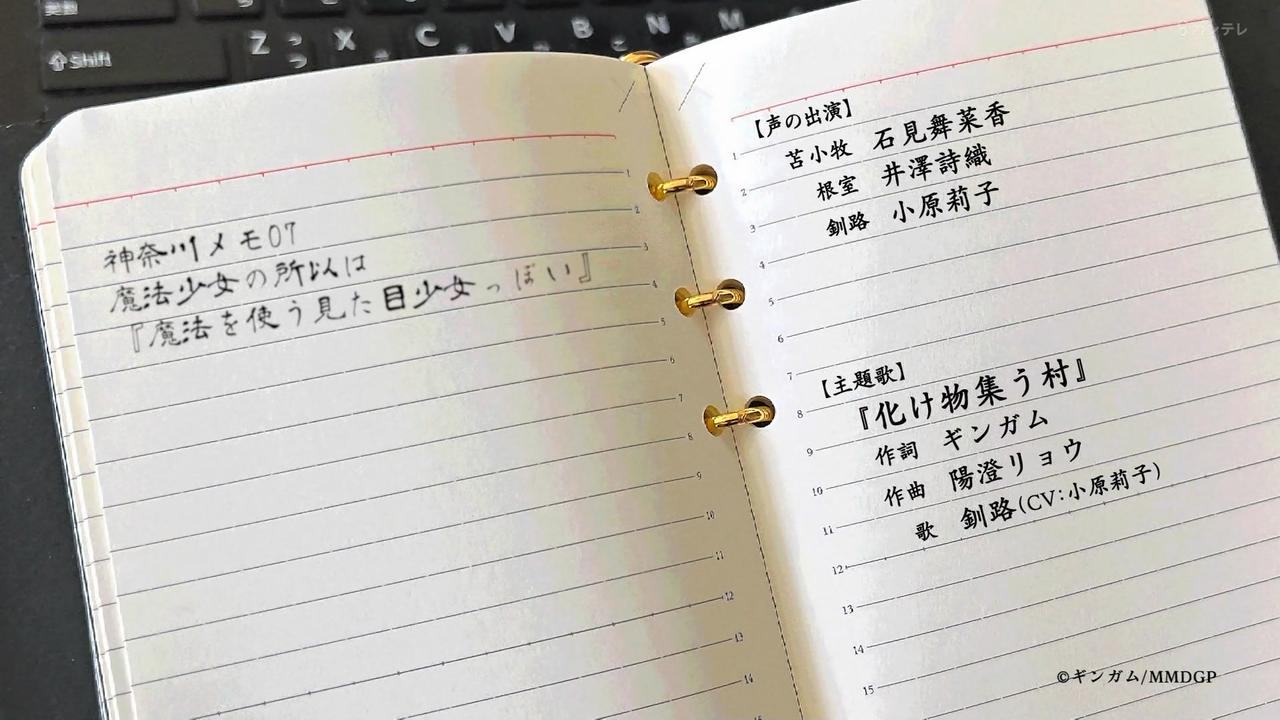 英数
Shift
Z っ
X
C
V
B こ
N
M
神奈川メモ07
魔法少女の所以は
『魔法を使う見た目少女っぽい』
1
2
3
4
5
6
7
8
9
10
11
12
13
14
15
【声の出演】
苫小牧 石見舞菜香
根室 井澤詩織
釧路 小原莉子
【主題歌】
『化け物集う村』
作詞 ギンガム
作曲 陽澄リョウ
歌 釧路(CV:小原莉子)
1
2
3
4
5
6
7
8
9
10
11
12
13
14
15
©ギンガム/MMDGP